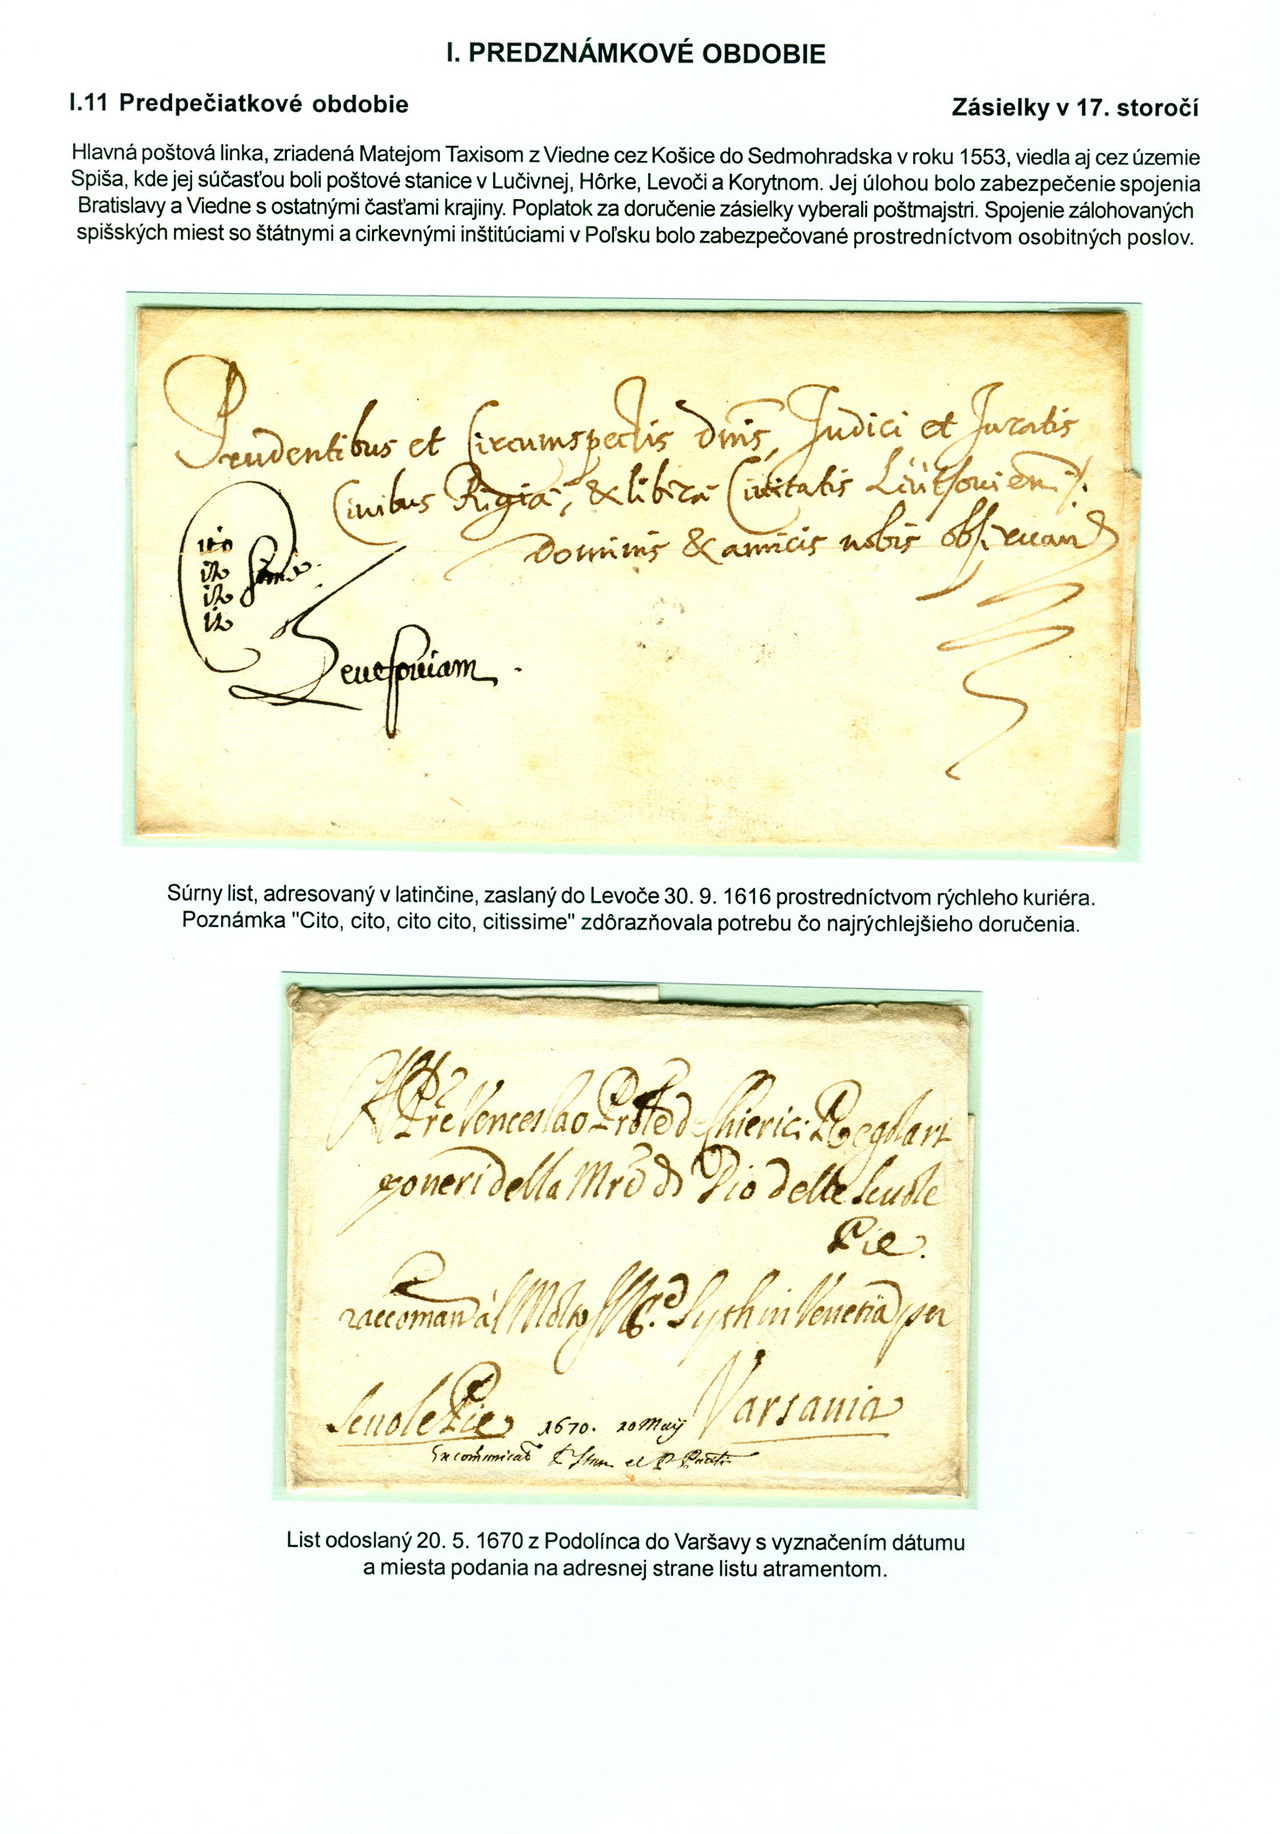 I. PREDZNÁMKOVÉ OBDOBIE
I.11 Predpečiatkové obdobie
Zásielky v 17. storočí
Hlavná poštová linka, zriadená Matejom Taxisom z Viedne cez Košice do Sedmohradska v roku 1553, viedla aj cez územie
Spiša, kde jej súčasťou boli poštové stanice v Lučivnej, Hôrke, Levoči a Korytnom. Jej úlohou bolo zabezpečenie spojenia
Bratislavy a Viedne s ostatnými časťami krajiny. Poplatok za doručenie zásielky vyberali poštmajstri. Spojenie zálohovaných
spišských miest so štátnymi a cirkevnými inštitúciami v Poľsku bolo zabezpečované prostredníctvom osobitných poslov.
Prudentibus et Circumspectis dnis, Judici et Juratis
Civibus Regiae, & liberae Civitatis
Dominis & amicis nobis
cito
cito
cito
cito
Súrny list, adresovaný v latinčine, zaslaný do Levoče 30. 9. 1616 prostredníctvom rýchleho kuriéra.
Poznámka "Cito, cito, cito cito, citissime" zdôrazňovala potrebu čo najrýchlejšieho doručenia.
Venceslao Chierici Regolari
poveri della Mre di Dio delle Scuole
Pie.
al Molto in Venetia per
Varsavia
Scuole Pie 1670. 20 Maij
List odoslaný 20. 5. 1670 z Podolínca do Varšavy s vyznačením dátumu
a miesta podania na adresnej strane listu atramentom.